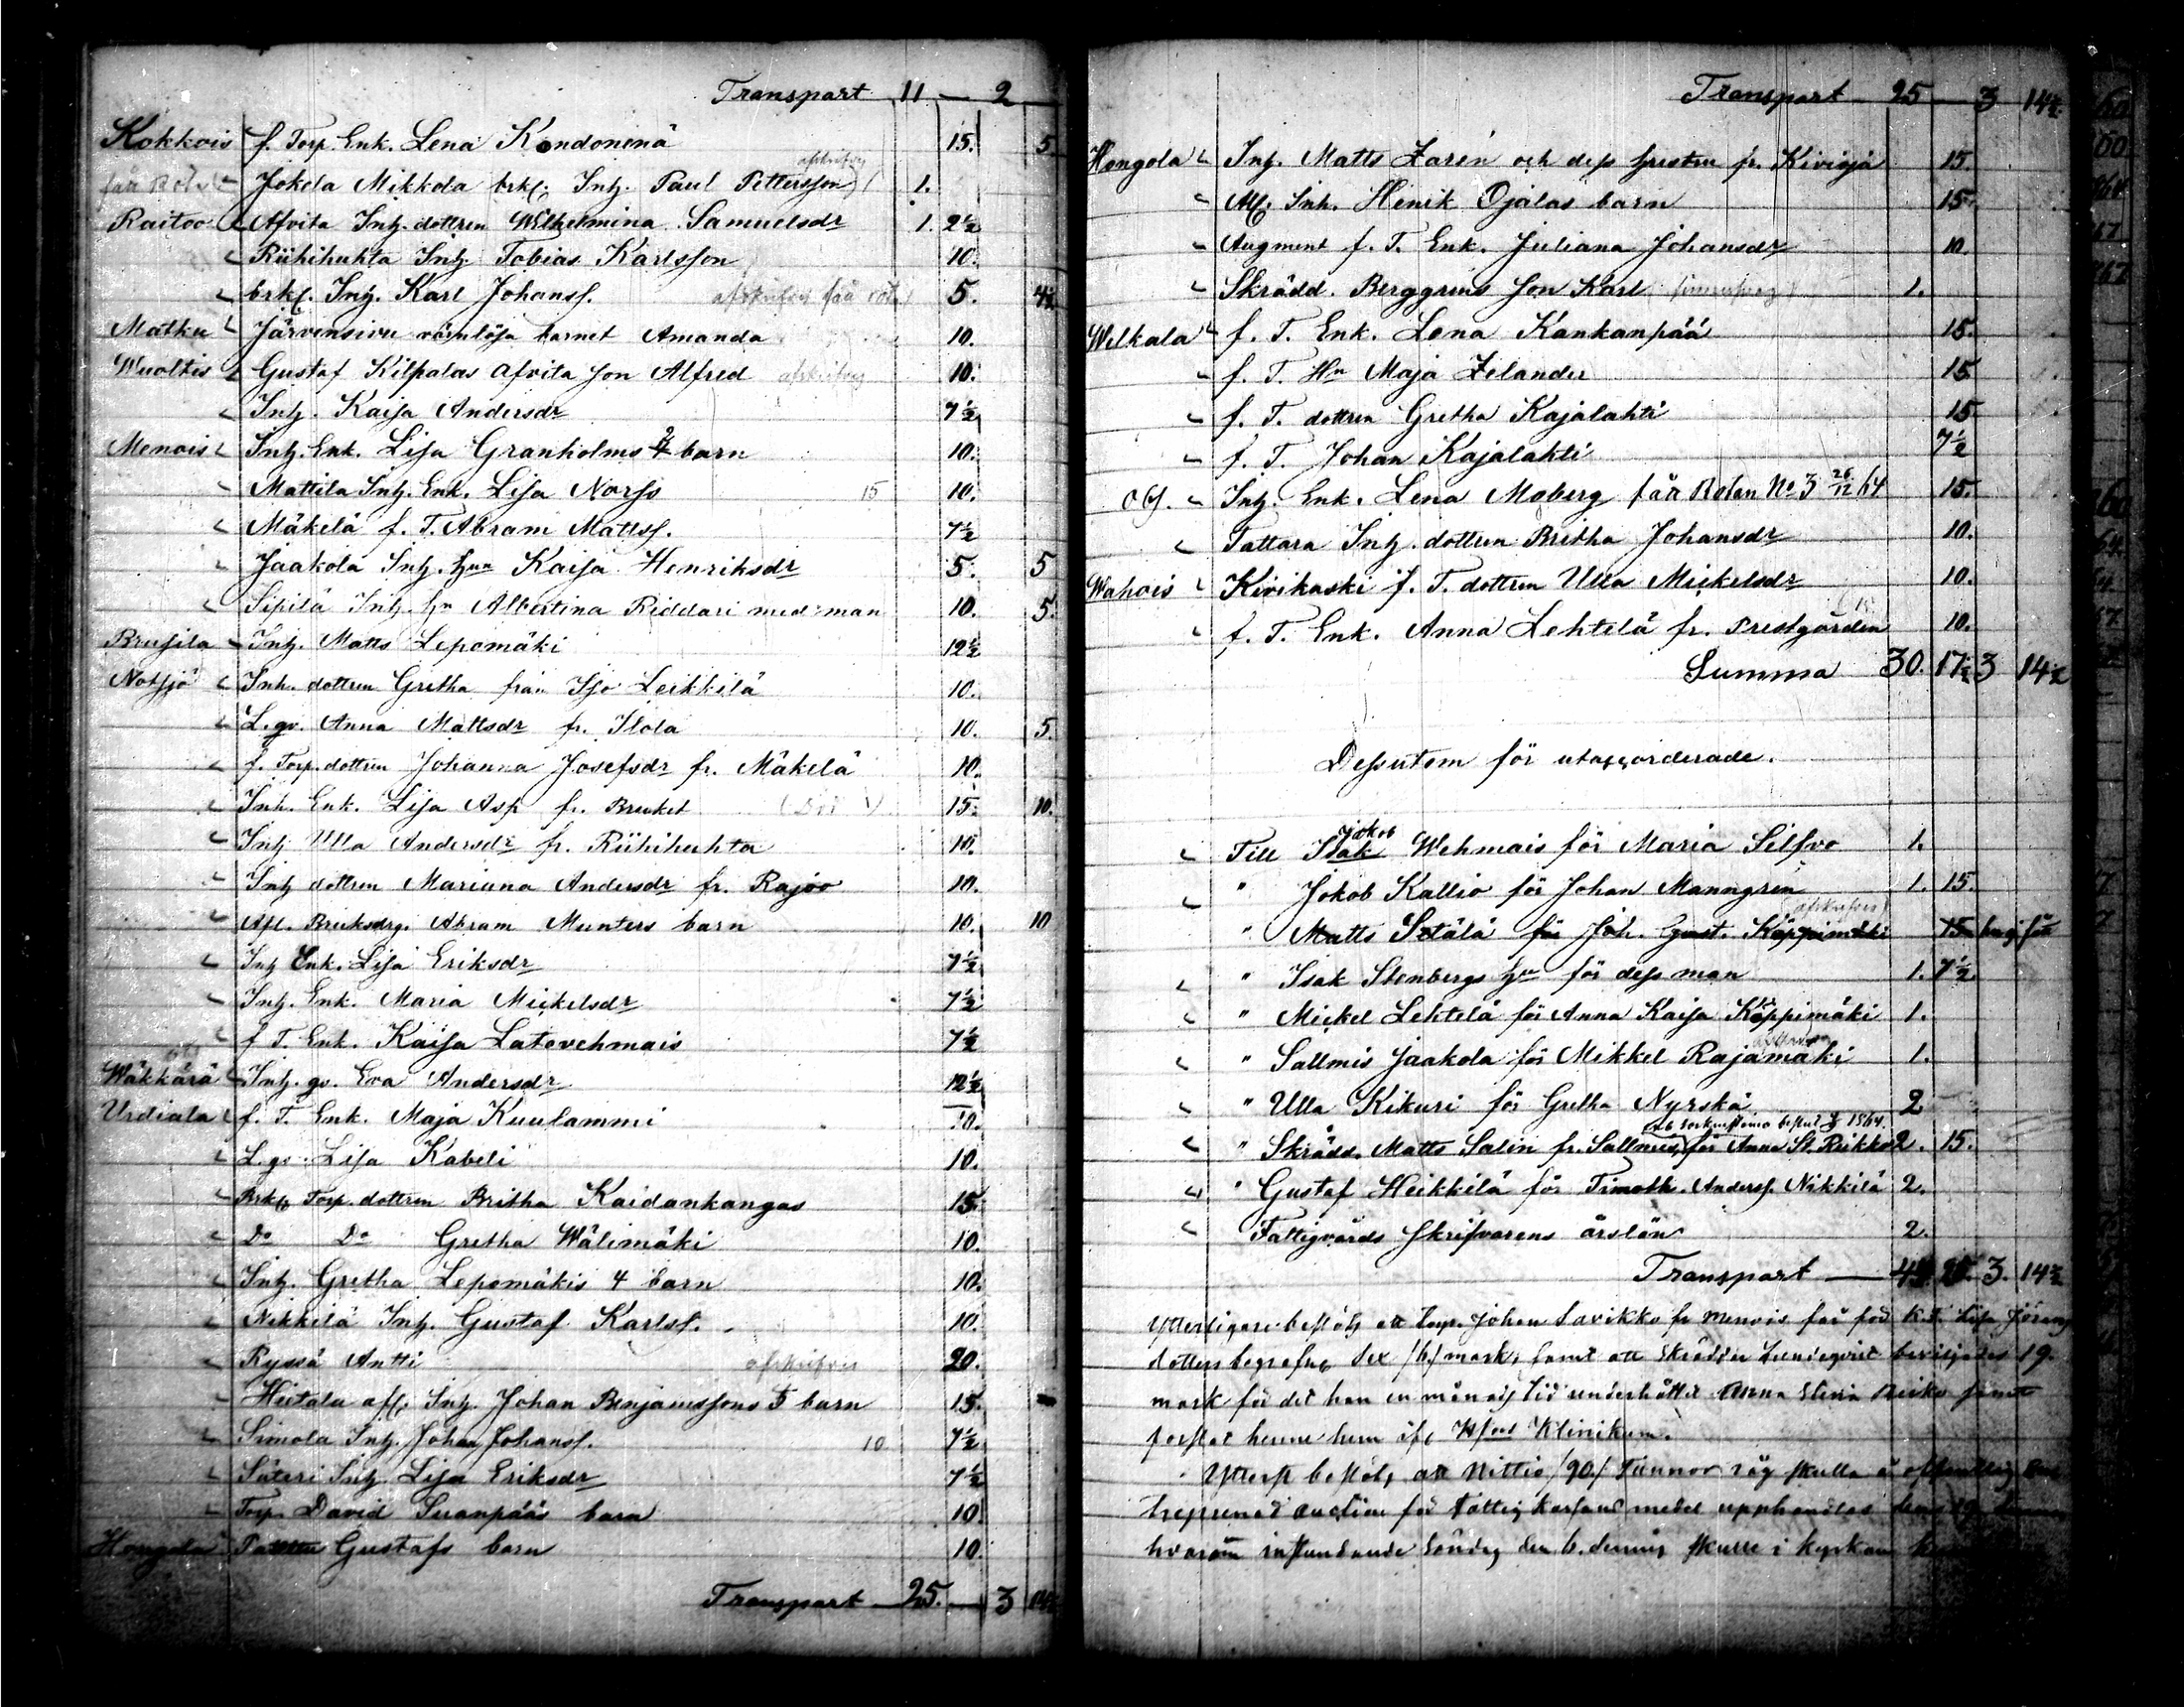 Transport 11 — 2
Kokkois f. Torp. Enk. Lena Kondonenä 15. 5
får Rote Jokela Mikkola brkl. Inh. Paul Pettersson afskrifves 1.
Raitoo Afvita Inh. dottren Wilhelmina Samuelsdr 1. 2½
Riihihuhta Inh. Tobias Karlsson 10.
brkl. Inh. Karl Johanss. afskrifves får rote 5. 4½
Matku Järvensivu värnlösa barnet Amanda 10.
Wuoltis Gustaf Kilpalas afvita son Alfred afskrifves 10.
Inh. Kaisa Andersdr 7½
Menois Inh. Enk. Lisa Granholms barn 10.
Mattila Inh. Enk. Lisa Norss 15 10.
Mäkelä f. T. Abram Mattss. 7½
Jaakola Inh. hun Kaisa Henriksdr 5. 5
Sipilä Inh. hn Albertina Riddari med man 10. 5.
Brusila Inh. Matts Lepomäki 12½
Notsjö Inh. dottren Gretha från Isjo Leikkilä 10.
L. gv. Anna Mattsdr fr. Ilola 10. 5.
f. Torp. dottren Johanna Josefsdr fr. Mäkelä 10.
Inh. Enk. Lisa Asp fr. Bruket 15. 10.
Inh Ulla Andersdr fr. Riihihuhta 10.
Inh dottren Mariana Andersdr fr. Rajoo 10.
Afl. Bruksdrg. Abram Munters barn 10. 10
Inh Enk. Lisa Eriksdr 7½
Inh. Enk. Maria Mickelsdr 7½
f T. Enk. Kaisa Latovehmais 7½
Wäkkärä Inh. gv. Eva Andersdr 12½
Urdiala f. T. Enk. Maja Kuulammi 10.
L. gv. Lisa Kabeli 10.
Brkl. Torp. dottren Britha Kaidankangas 15.
Do Do Gretha Wälimäki 10.
Inh. Gretha Lepomäkis 4 barn 10.
Nikkilä Inh. Gustaf Karlss. 10.
Ryssä Antti afskrifves 20.
Hiitola afl. Inh. Johan Benjamssons 5 barn 15.
Simola Inh. Johan Johanss. 10 7½
Säteri Inh. Lisa Eriksdr 7½
Torp. David Suanpääs barn 10
Hongola Gustafs barn 10.
Transport — 25. — 3 14½
Transport — 25 — 3 14½
Hongola Inh. Matts Zarén och dess hustru fr. Kivisjä 15.
Afl. Inh. Henik Ojalas barn 15.
Augment f. T. Enk. Juliana Johansdr 10.
Skrädd. Berggrens son Karl 1.
Welkala f. T. Enk. Lena Kankanpää 15.
f. T. Hn Maja Zelander 15
f. T. dottren Gretha Kajalahti 15
f. T. Johan Kajalahti 7½
Obs. Inh. Enk. Lena Moberg får Roten No 3 26/12 64 15.
Tattara Inh. dottren Britha Johansdr 10.
Wahois Kivikoski f. T. dottren Ulla Mickelsdr 10.
f. T. Enk. Anna Lehtelä fr. Prestgården 15. 10.
Summa 30. 17½ 3 14½
Dessutom för utackorderade.
Jakob
Till Isak Wehmais för Maria Silfvo 1.
" Jokob Kallio för Johan Manngren 1. 15.
afskrifves
" Matts Setälä för Joh. Gust. Käppimäki 15
" Isak Stenbergs hn för dess man 1. 7½.
" Mickel Lehtelä för Anna Kaisa Köppimäki 1.
" Sallmis Jaakola för Mikkel Rajamäki 1.
" Ulla Kikuri för Gretha Nyrskä 2
beslut 1864.
" Skrädd. Matts Salin fr. Sallmis för Anna St. Reikko 2. 15.
" Gustaf Heikkilä för Timoth. Anderss. Nikkilä 2.
Fattigvårds skrifvarens årslön 2.
Transport — 3. 14½
Ytterligare beslöts att Torp. Johan Savikko fr Menois får för Lisa Jörans
dotters begrafng sex /6/ mark, samt att skräddar Lundqvist beviljades 19.
mark för det han en månads tid underhållit Anna Stina Reiko samt
forslat henne hem ifr Hfors Klinikum.
Ytterst beslöts att Nittio /90/ Tunnor råg skulle å offentlig
auction för fattig kassans medel upphandlas den 19
hvarom instundande Söndag den 6. dennes skulle i kyrkan